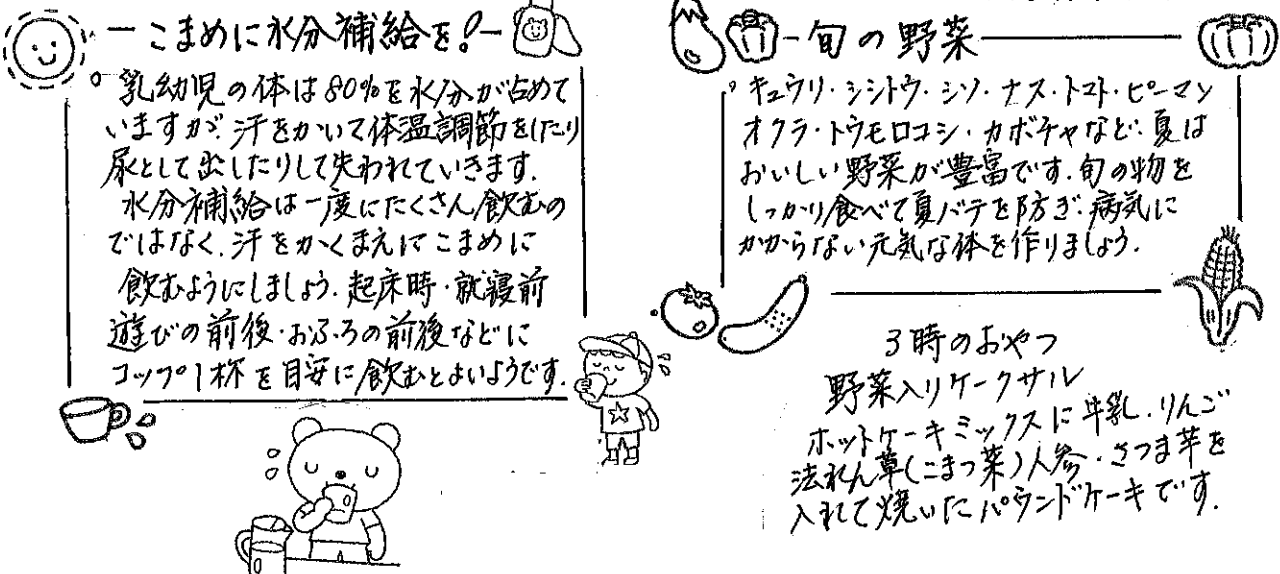 こまめに水分補給を！
。乳幼児の体は80%を水分が占めて
いますが、汗をかいて体温調節をしたり
尿として出したりして失われていきます。
水分補給は一度にたくさん飲むの
ではなく、汗をかくまえにこまめに
飲むようにしましょう。起床時・就寝前
遊びの前後・おふろの前後などに
コップ1杯を目安に飲むとよいようです。
旬の野菜
。キュウリ・シシトウ・シソ・ナス・トマト・ピーマン
オクラ・トウモロコシ・カボチャなど、夏は
おいしい野菜が豊富です。旬の物を
しっかり食べて夏バテを防ぎ、病気に
かからない元気な体を作りましょう。
3時のおやつ
野菜入りケークサル
ホットケーキミックスに牛乳、りんご
法れん草(こまつ菜)人参・さつま芋を
入れて焼いたパウンドケーキです。